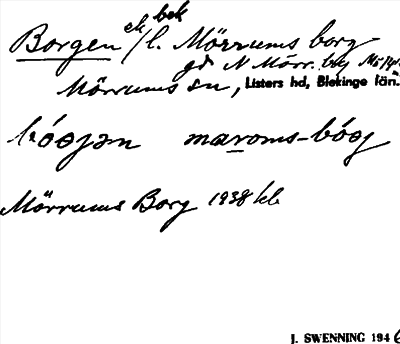 ek bek
Borgen / l. Mörrums borg
gd N Mörr. bk
Mörrums sn, Listers hd, Blekinge län.
bóɷjən maroms-bóɷj
Mörrums Borg 1938 kb
J. SWENNING 1946